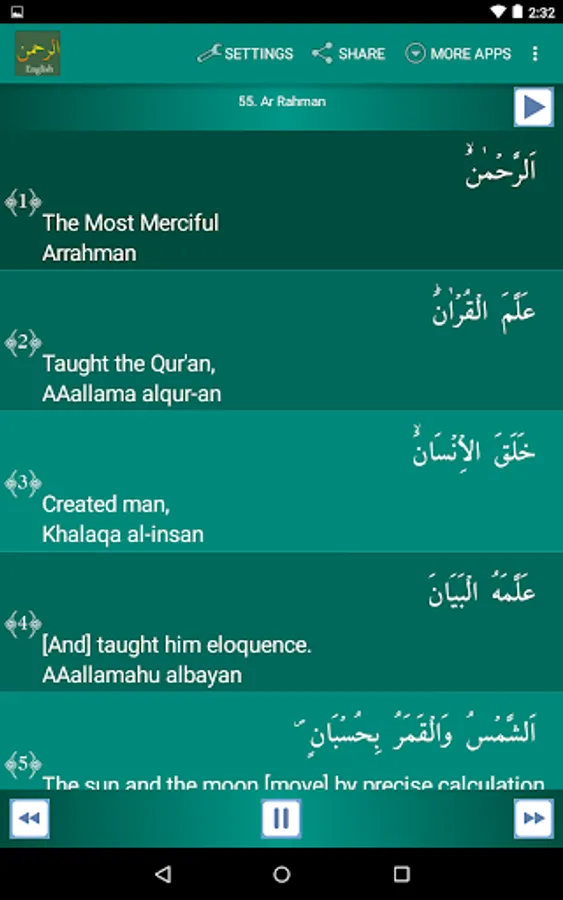 2:32
الرحمن
English
SETTINGS
SHARE
MORE APPS
55. Ar Rahman
اَلرَّحْمٰنُۙ
﴾1﴿
The Most Merciful
Arrahman
عَلَّمَ الْقُرْاٰنَؕ
﴾2﴿
Taught the Qur'an,
AAallama alqur-an
خَلَقَ الْاِنْسَانَۙ
﴾3﴿
Created man,
Khalaqa al-insan
عَلَّمَهُ الْبَيَانَ
﴾4﴿
[And] taught him eloquence.
AAallamahu albayan
اَلشَّمْسُ وَالْقَمَرُ بِحُسْبَانٍ ۪
﴾5﴿
The sun and the moon [move] by precise calculation